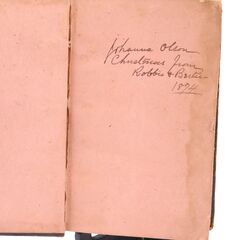 Johanna Olson
Christmas from
Robbie & Bertie
1894